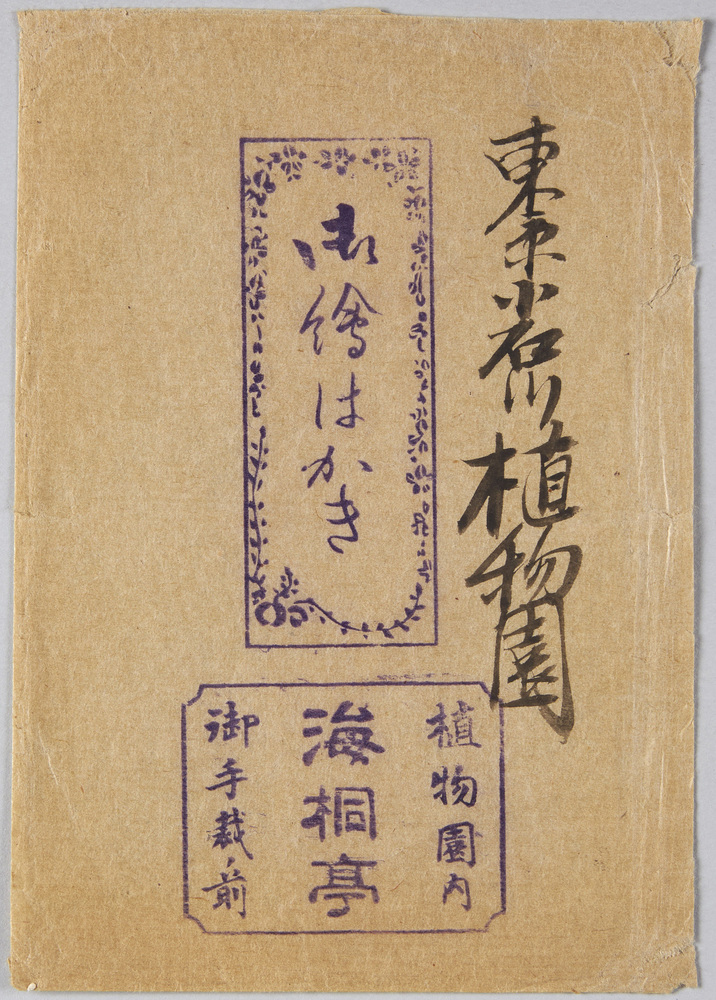 東京小石川植物園
御繪はかき
植物園内
海桐亭
御手栽ノ前